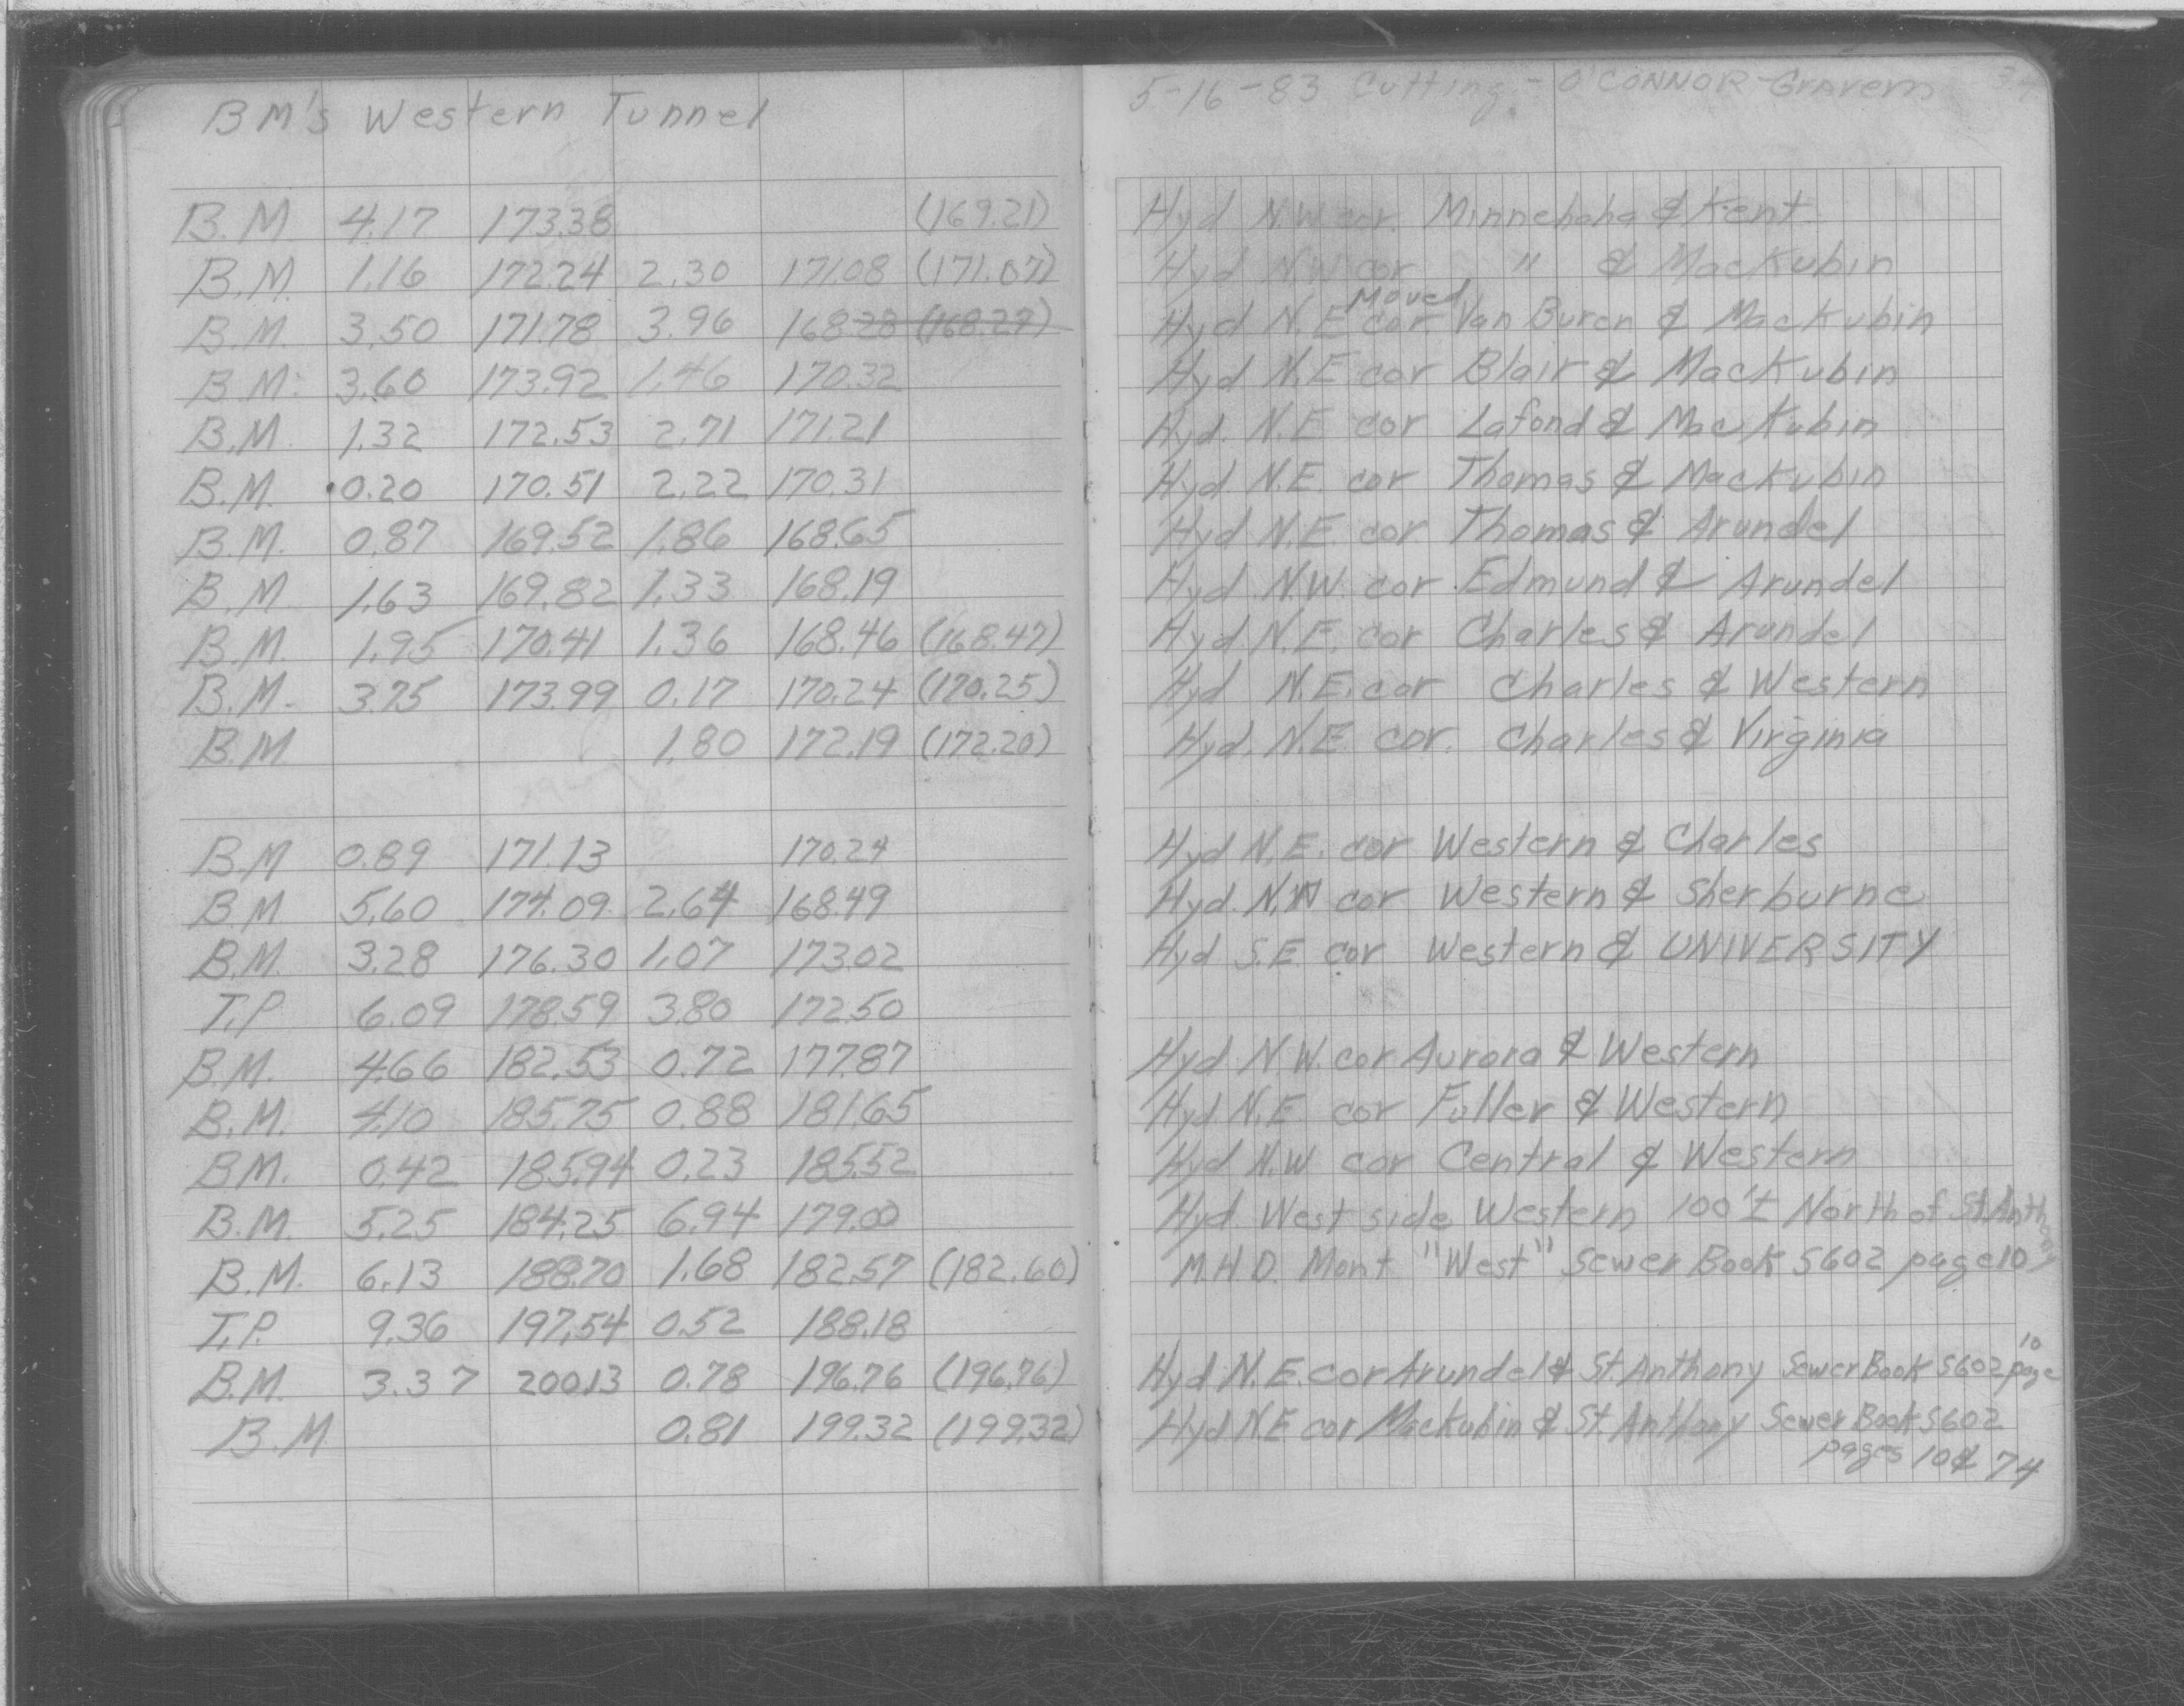 BM's Western Tunnel
5-16-83 Cutting - O'CONNOR - Gravem
B.M. 4.17 173.38 (169.21) Hyd N.W. cor. Minnehaha & Kent
B.M. 1.16 172.24 2.30 171.08 (171.07) Hyd N.W. cor " & Mackubin
Moved
B.M. 3.50 171.78 3.96 168.28 (168.27) Hyd N.E. cor. Van Buren & Mackubin
B.M. 3.60 173.92 1.46 170.32 Hyd N.E. cor Blair & Mackubin
B.M. 1.32 172.53 2.71 171.21 Hyd. N.E. cor Lafond & Mackubin
B.M. 0.20 170.51 2.22 170.31 Hyd N.E. cor Thomas & Mackubin
B.M. 0.87 169.52 1.86 168.65 Hyd N.E. cor Thomas & Arundel
B.M. 1.63 169.82 1.33 168.19 Hyd N.W. cor Edmund & Arundel
B.M. 1.95 170.41 1.36 168.46 (168.47) Hyd. N.E. cor Charles & Arundel
B.M. 3.75 173.99 0.17 170.24 (170.25) Hyd N.E. cor Charles & Western
B.M 1.80 172.19 (172.20) Hyd. N.E. cor. Charles & Virginia
B.M 0.89 171.13 170.24 Hyd N.E. cor Western & Charles
B.M 5.60 174.09 2.64 168.49 Hyd. N.W cor Western & Sherburne
B.M. 3.28 176.30 1.07 173.02 Hyd S.E. cor Western & UNIVERSITY
T.P. 6.09 178.59 3.80 172.50
B.M. 4.66 182.53 0.72 177.87 Hyd N.W. cor Aurora & Western
B.M. 4.10 185.75 0.88 181.65 Hyd N.E cor Fuller & Western
BM. 0.42 185.94 0.23 185.52 Hyd N.W cor Central & Western
B.M. 5.25 184.25 6.94 179.00 Hyd West side Western 100'± North of St. Anthony
B.M. 6.13 188.70 1.68 182.57 (182.60) M.H.D. Mont "West" Sewer Book 5602 page 10
T.P. 9.36 197.54 0.52 188.18
B.M. 3.37 200.13 0.78 196.76 (196.76) Hyd N.E. cor Arundel & St. Anthony Sewer Book 5602 page 10
B.M 0.81 199.32 (199.32) Hyd N.E cor Mackubin & St. Anthony Sewer Book 5602
pages 10 & 74